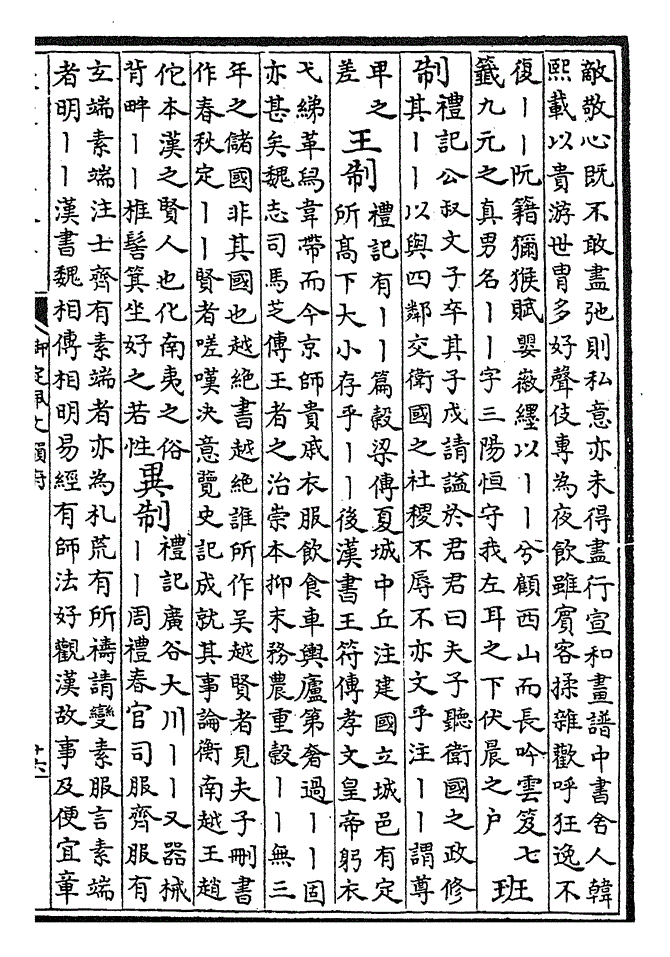 敵敬心既不敢盡弛則私意亦未得盡行宣和畫譜中書舍人韓
熙載以貴游世胄多好聲伎專為夜飲雖賓客揉雜歡呼狂逸不
復丨丨阮籍獼猴賦嬰徽纆以丨丨兮顧西山而長吟雲笈七
籤九元之真男名丨丨字三陽恒守我左耳之下伏晨之户
班
制
禮記公叔文子卒其子戍請諡於君君曰夫子聽衛國之政修
其丨丨以與四鄰交衛國之社稷不辱不亦文乎注丨丨謂尊
卑之
差
王制
禮記有丨丨篇穀梁傳夏城中丘注建國立城邑有定
所高下大小存乎丨丨後漢書王符傳孝文皇帝躬衣
弋綈革舄韋帶而今京師貴戚衣服飲食車輿廬第奢過丨丨固
亦甚矣魏志司馬芝傳王者之治崇本抑末務農重穀丨丨無三
年之儲國非其國也越絶書越絶誰所作吳越賢者見夫子刪書
作春秋定丨丨賢者嗟嘆決意覽史記成就其事論衡南越王趙
佗本漢之賢人也化南夷之俗
背畔丨丨椎髻箕坐好之若性
異制
禮記廣谷大川丨丨又器械
丨丨周禮春官司服齊服有
玄端素端注士齊有素端者亦為札荒有所禱請變素服言素端
者明丨丨漢書魏相傳相明易經有師法好觀漢故事及便宜章
御定佩文韻府
廿六